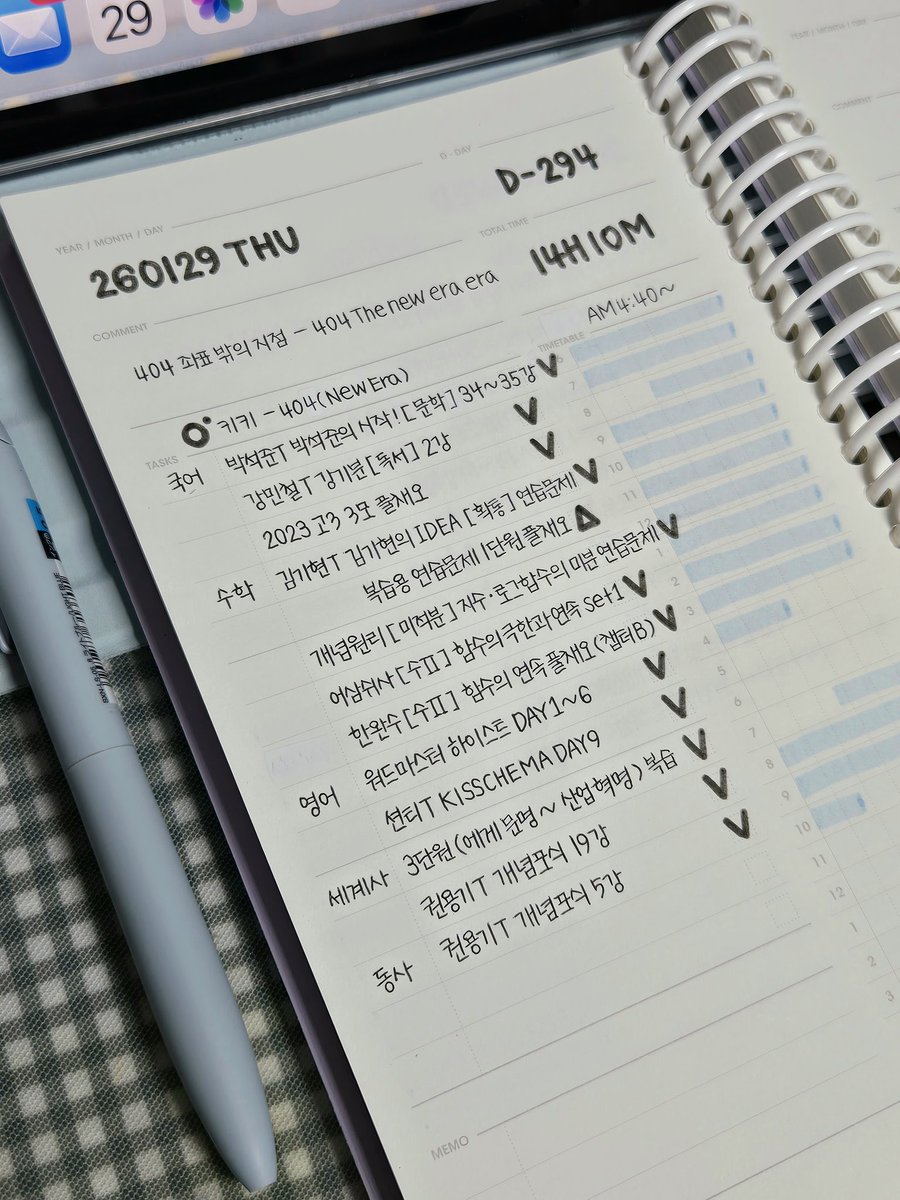 29
YEAR / MONTH / DAY
260129 THU
D - DAY
D-294
COMMENT
404 좌표 밖의 지점 - 404 The new era era
키키 - 404 (New Era)
TOTAL TIME
14H 10M
TASKS
국어 박석준T 박석준의 시작! [문학] 34~35강 V
강민철T 강기분 [독서] 2강 V
2023 고3 3모 풀채오 V
수학 김기현T 김기현의 IDEA [확통] 연습문제 V
복습용 연습문제 1단원 풀채오 △
개념원리 [미적분] 지수·로그함수의 미분 연습문제 V
어삼쉬사 [수II] 함수의 극한과 연속 set1 V
한완수 [수II] 함수의 연속 풀채오 (챕터B) V
영어 워드마스터 하이스트 DAY1~6 V
션티T KISSCHEMA DAY9 V
세계사 3단원 (에게 문명 ~ 산업혁명) 복습 V
권용기T 개념포식 19강 V
동사 권용기T 개념포식 5강 V
AM 4:40~
TIMETABLE
6
7
8
9
10
11
12
1
2
3
4
5
6
7
8
9
10
11
12
1
2
3
MEMO
YEAR / MONTH / DAY
COMMENT